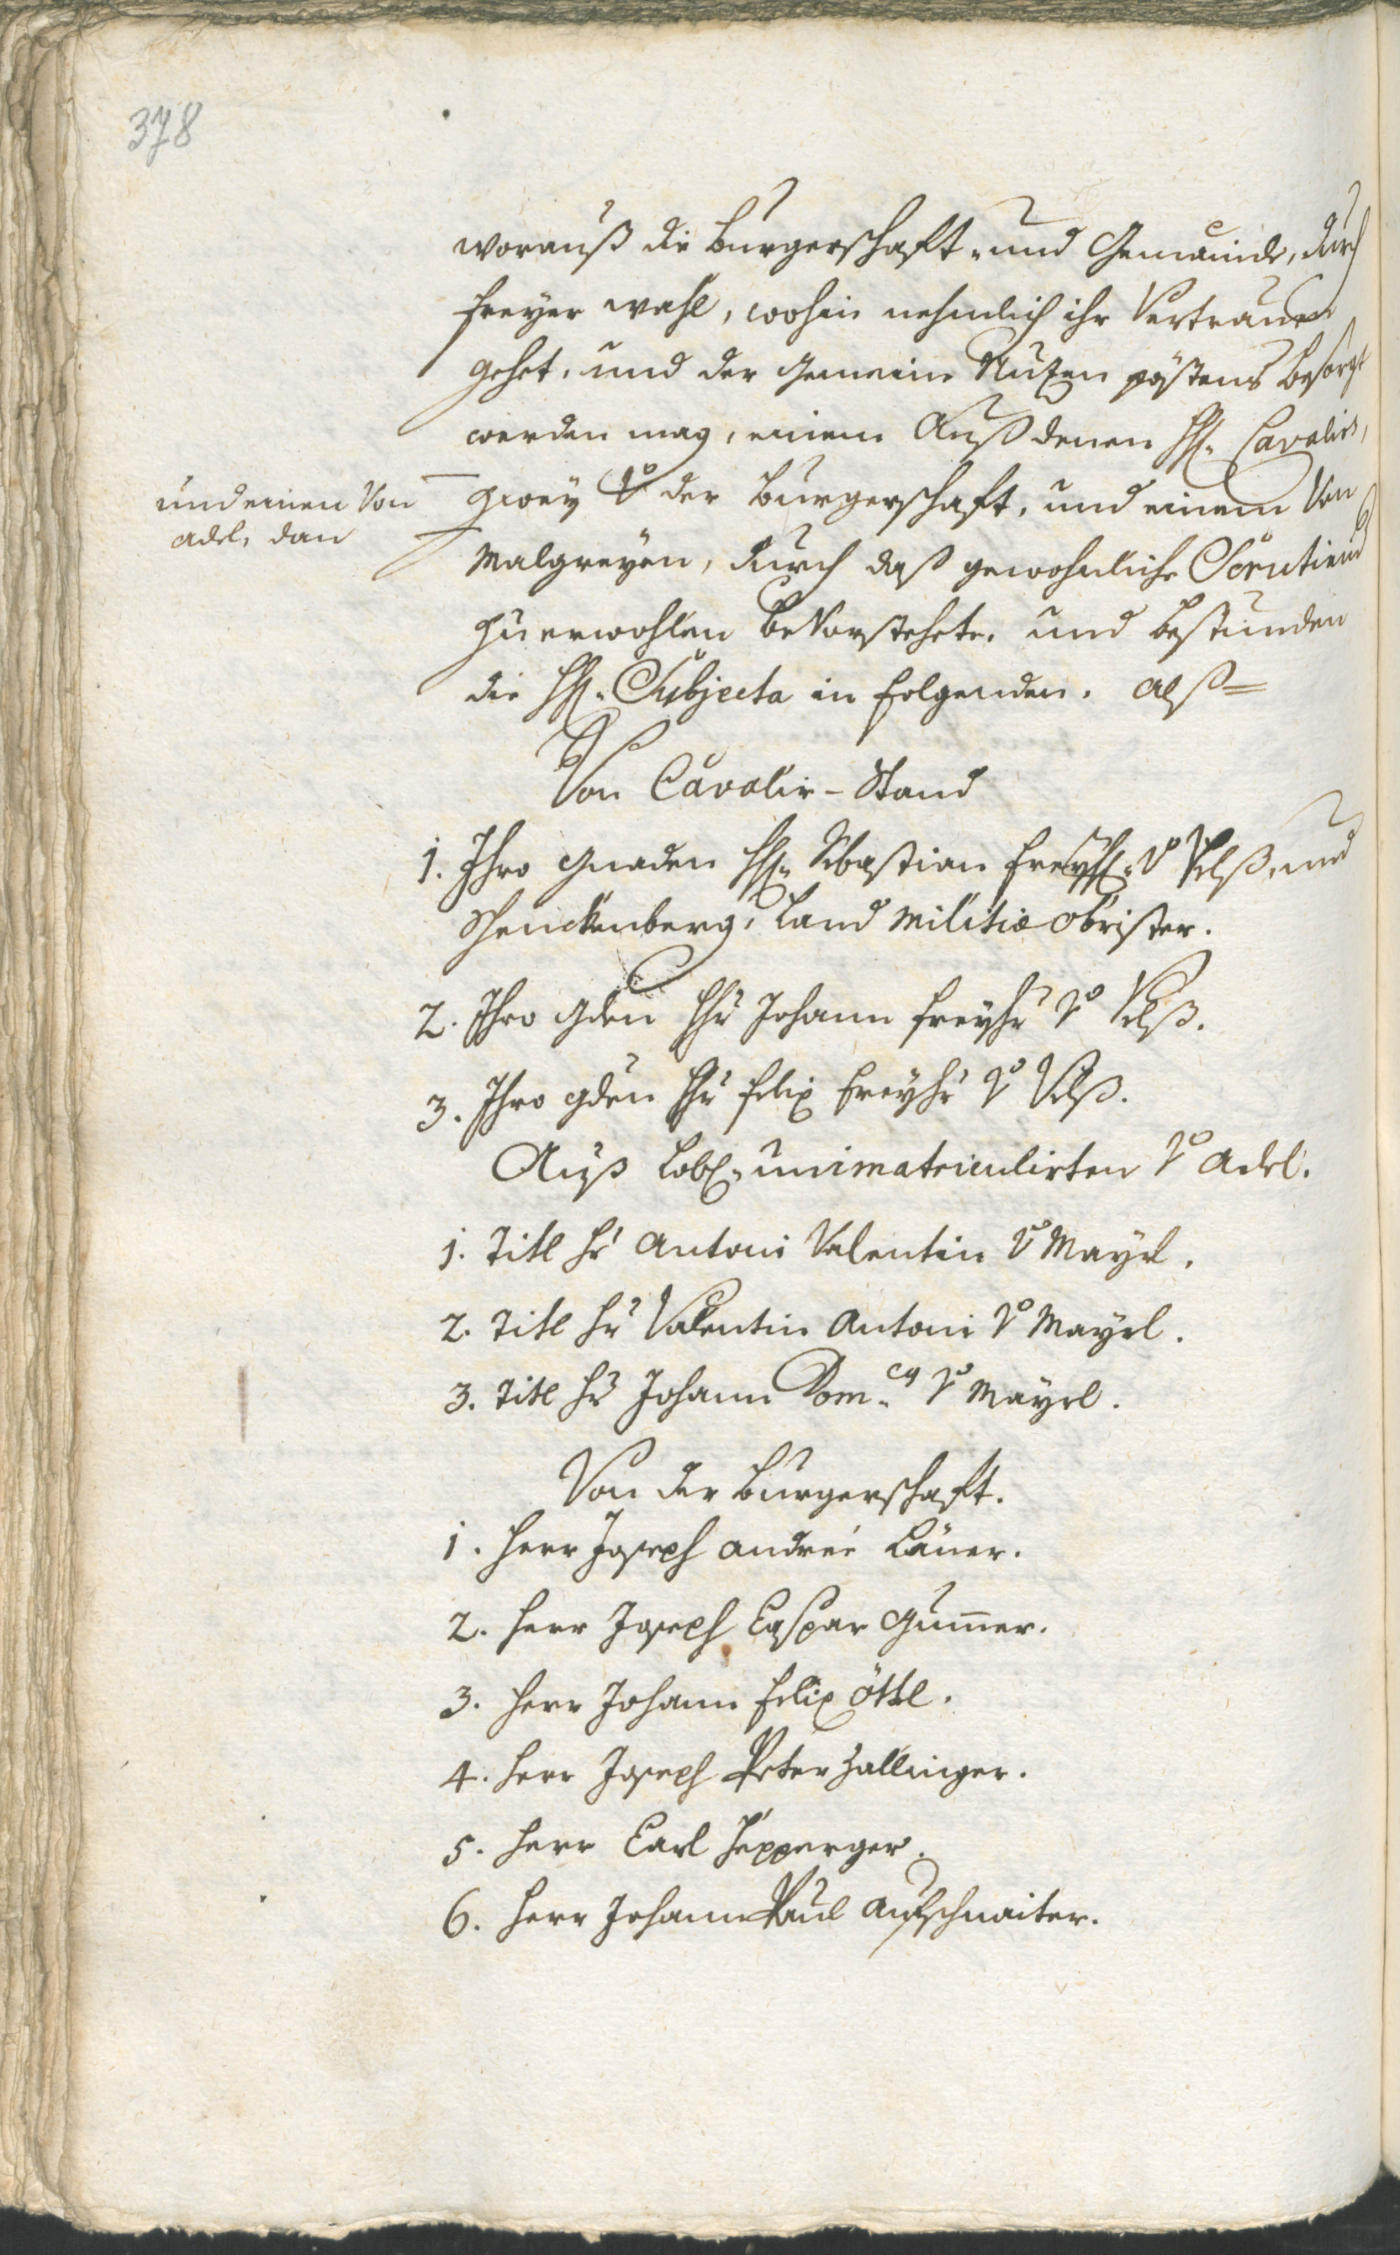 378
worauß die burgerschafft- und Gemainde, durch
freyer wahl, wohin nehmlich ihr Vertrauen
gehet, und der gemeine Nuzen pöstens besorgt
werden mag, einem Auß denen HH. Cavaliers,
und einen Von
adl, dan
zwey v. der burgerschafft, und einem Von
Malgreyen, durch daß gewohnliche Scrutinium
zu erwohlen bevorstehete. und bestunden
die HH. Subjecta in folgenden. Alß=
Von Cavalir-Stand
1. Ihro gnaden HH. Sebastian Freyh. v. Velß, und
Schenckenberg, Land Militiæ Obrister.
2. Ihro gden Hr Johann Freyhr v. Velß.
3. Ihro gden Hr Felix Freyhr v. Velß.
Auß Löbl. unimatriculirten v. Adel.
1. Titl Hr Antoni Valentin v. Mayrl.
2. Titl Hr Valentin Antoni v. Mayrl.
3. Titl Hr Johann Dom.cq v. Mayrl.
Von der burgerschafft.
1. Herr Joseph Andreé Läner.
2. Herr Joseph Caspar Gum̄er.
3. Herr Johann Felix Öttl.
4. Herr Joseph Peter Zallinger.
5. Herr Carl Hepperger.
6. Herr Johann Paul Aufschnaiter.